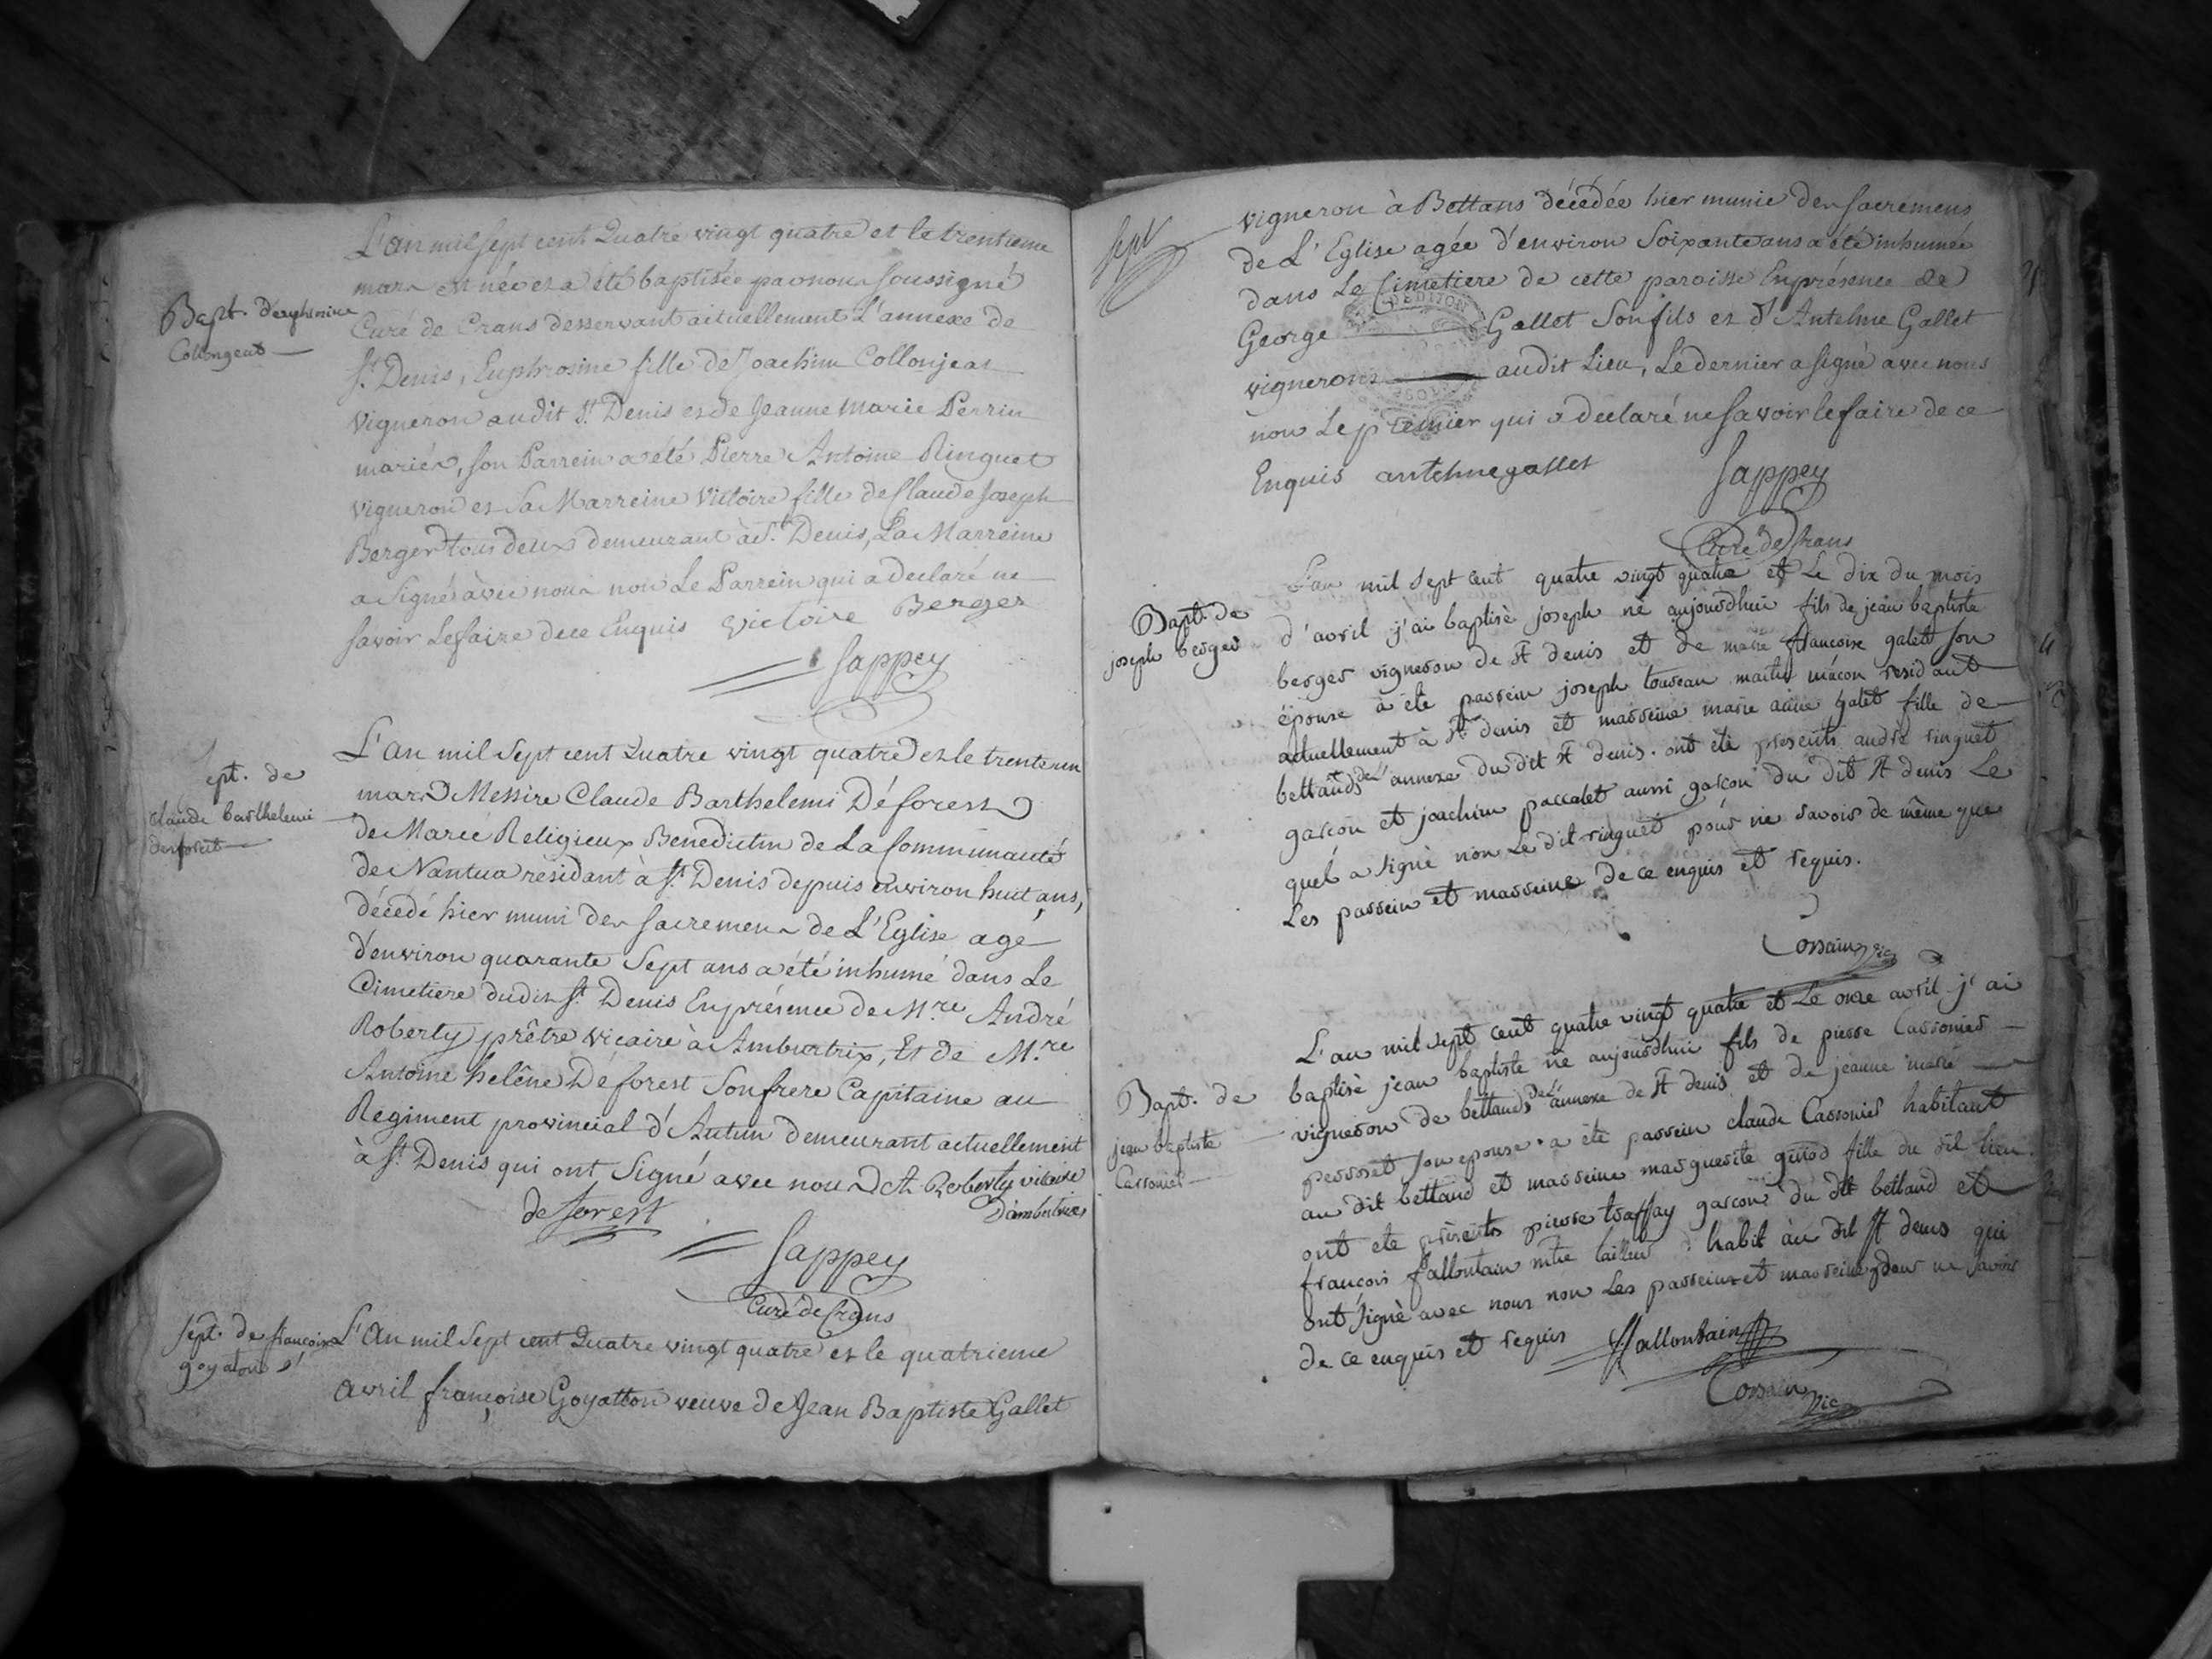 L'an mil sept cent Quatre vingt quatre et le trentieme
mars est née et a été baptisée par nous soussigné
Bapt. d'euphrosine
Collongeat
Curé de Crans desservant actuellement L'annexe de
St. Denis, Euphrosine fille de Joachim Collonjeat
Vigneron audit St. Denis et de Jeanne Marie Perrin
mariés, son Parrein a été Pierre Antoine Ringuet
vigneron et Sa Marreine Victoire fille de Claude Joseph
Berger tous deux demeurant à St. Denis, La Marreine
a Signé avec nous non Le Parrein qui a declaré ne
savoir Lefaire de ce Enquis victoire Berger
Sappey
L'an mil Sept cent Quatre vingt quatre et le trente un
ept. de
claude barthelemi
deforest
mars Messire Claude Barthelemi Déforest
de Marié Religieux Benedictin de La Communauté
de Nantua résidant à St. Denis depuis environ huit ans,
décédé hier muni des sacremens de L'Eglise agé
d'environ quarante Sept ans a été inhumé dans Le
Cimetiere dudit St. Denis En présence de M.re André
Roberty prêtre vicaire à Ambutrix, Et de M.re
Antoine helêne Déforest Son frere Capitaine au
Régiment provincial d'Autun demeurant actuellement
à St. Denis qui ont Signé avec nous Roberty vicaire
D'ambutrix
de forest
Sappey
Curé de Crans
Sept. de françoise
goyaton
L'An mil Sept cent Quatre vingt quatre et le quatrieme
Avril françoise Goyatton veuve de Jean Baptiste Gallet
Sept
vigneron à Bettans décédée hier munie des Sacremens
de L'Eglise agée d'environ Soixante ans a été inhumée
dans Le Cimetiere de cette paroisse En présence de
George Gallet Son fils et d'Antelme Gallet
vignerons audit Lieu, Le dernier a signé avec nous
non Le premier qui a declaré ne Savoir le faire de ce
Enquis antelme gallet Sappey
Curé de Crans
Bapt. de
joseph berger
L'an mil sept cent quatre vingt quatre et Le dix du mois
d'avril j'ai baptisé joseph né aujourdhui fils de jean baptiste
berger vigneron de St denis et de marie francoise galett son
épouse à été parrein joseph toureau maitre mácon residant
actuellement à St denis et marreine marie anne galet fille de
bettand de L'annexe du dit St denis. ont été presents andré ringuet
garcon et joachim paccalet aussi garcon du dit St denis Le
quel a signé non Le dit ringuet pour ne savoir de même que
Les parrein et marreine de ce enquis et requis.
Cossain vic
Bapt. de
jean baptiste
Carronier
L'an mil sept cent quatre vingt quatre et Le onze avril j'ai
baptisé jean baptiste né aujourdhui fils de pierre Carronier
vigneron de bettands de L'annexe de St denis et de jeanne marie
perroset son epouse a été parrein claude Carronier habitant
au dit bettand et marreine marguerite guiod fille du dit lieu.
ont été présents pierre traffay garcon du dit bettand et
françois fallontain mtre tailleur d'habit au dit St denis qui
ont signé avec nous non Les parrein et marreine pour ne savoir
de ce enquis et requis ffallontain
Cossain vic